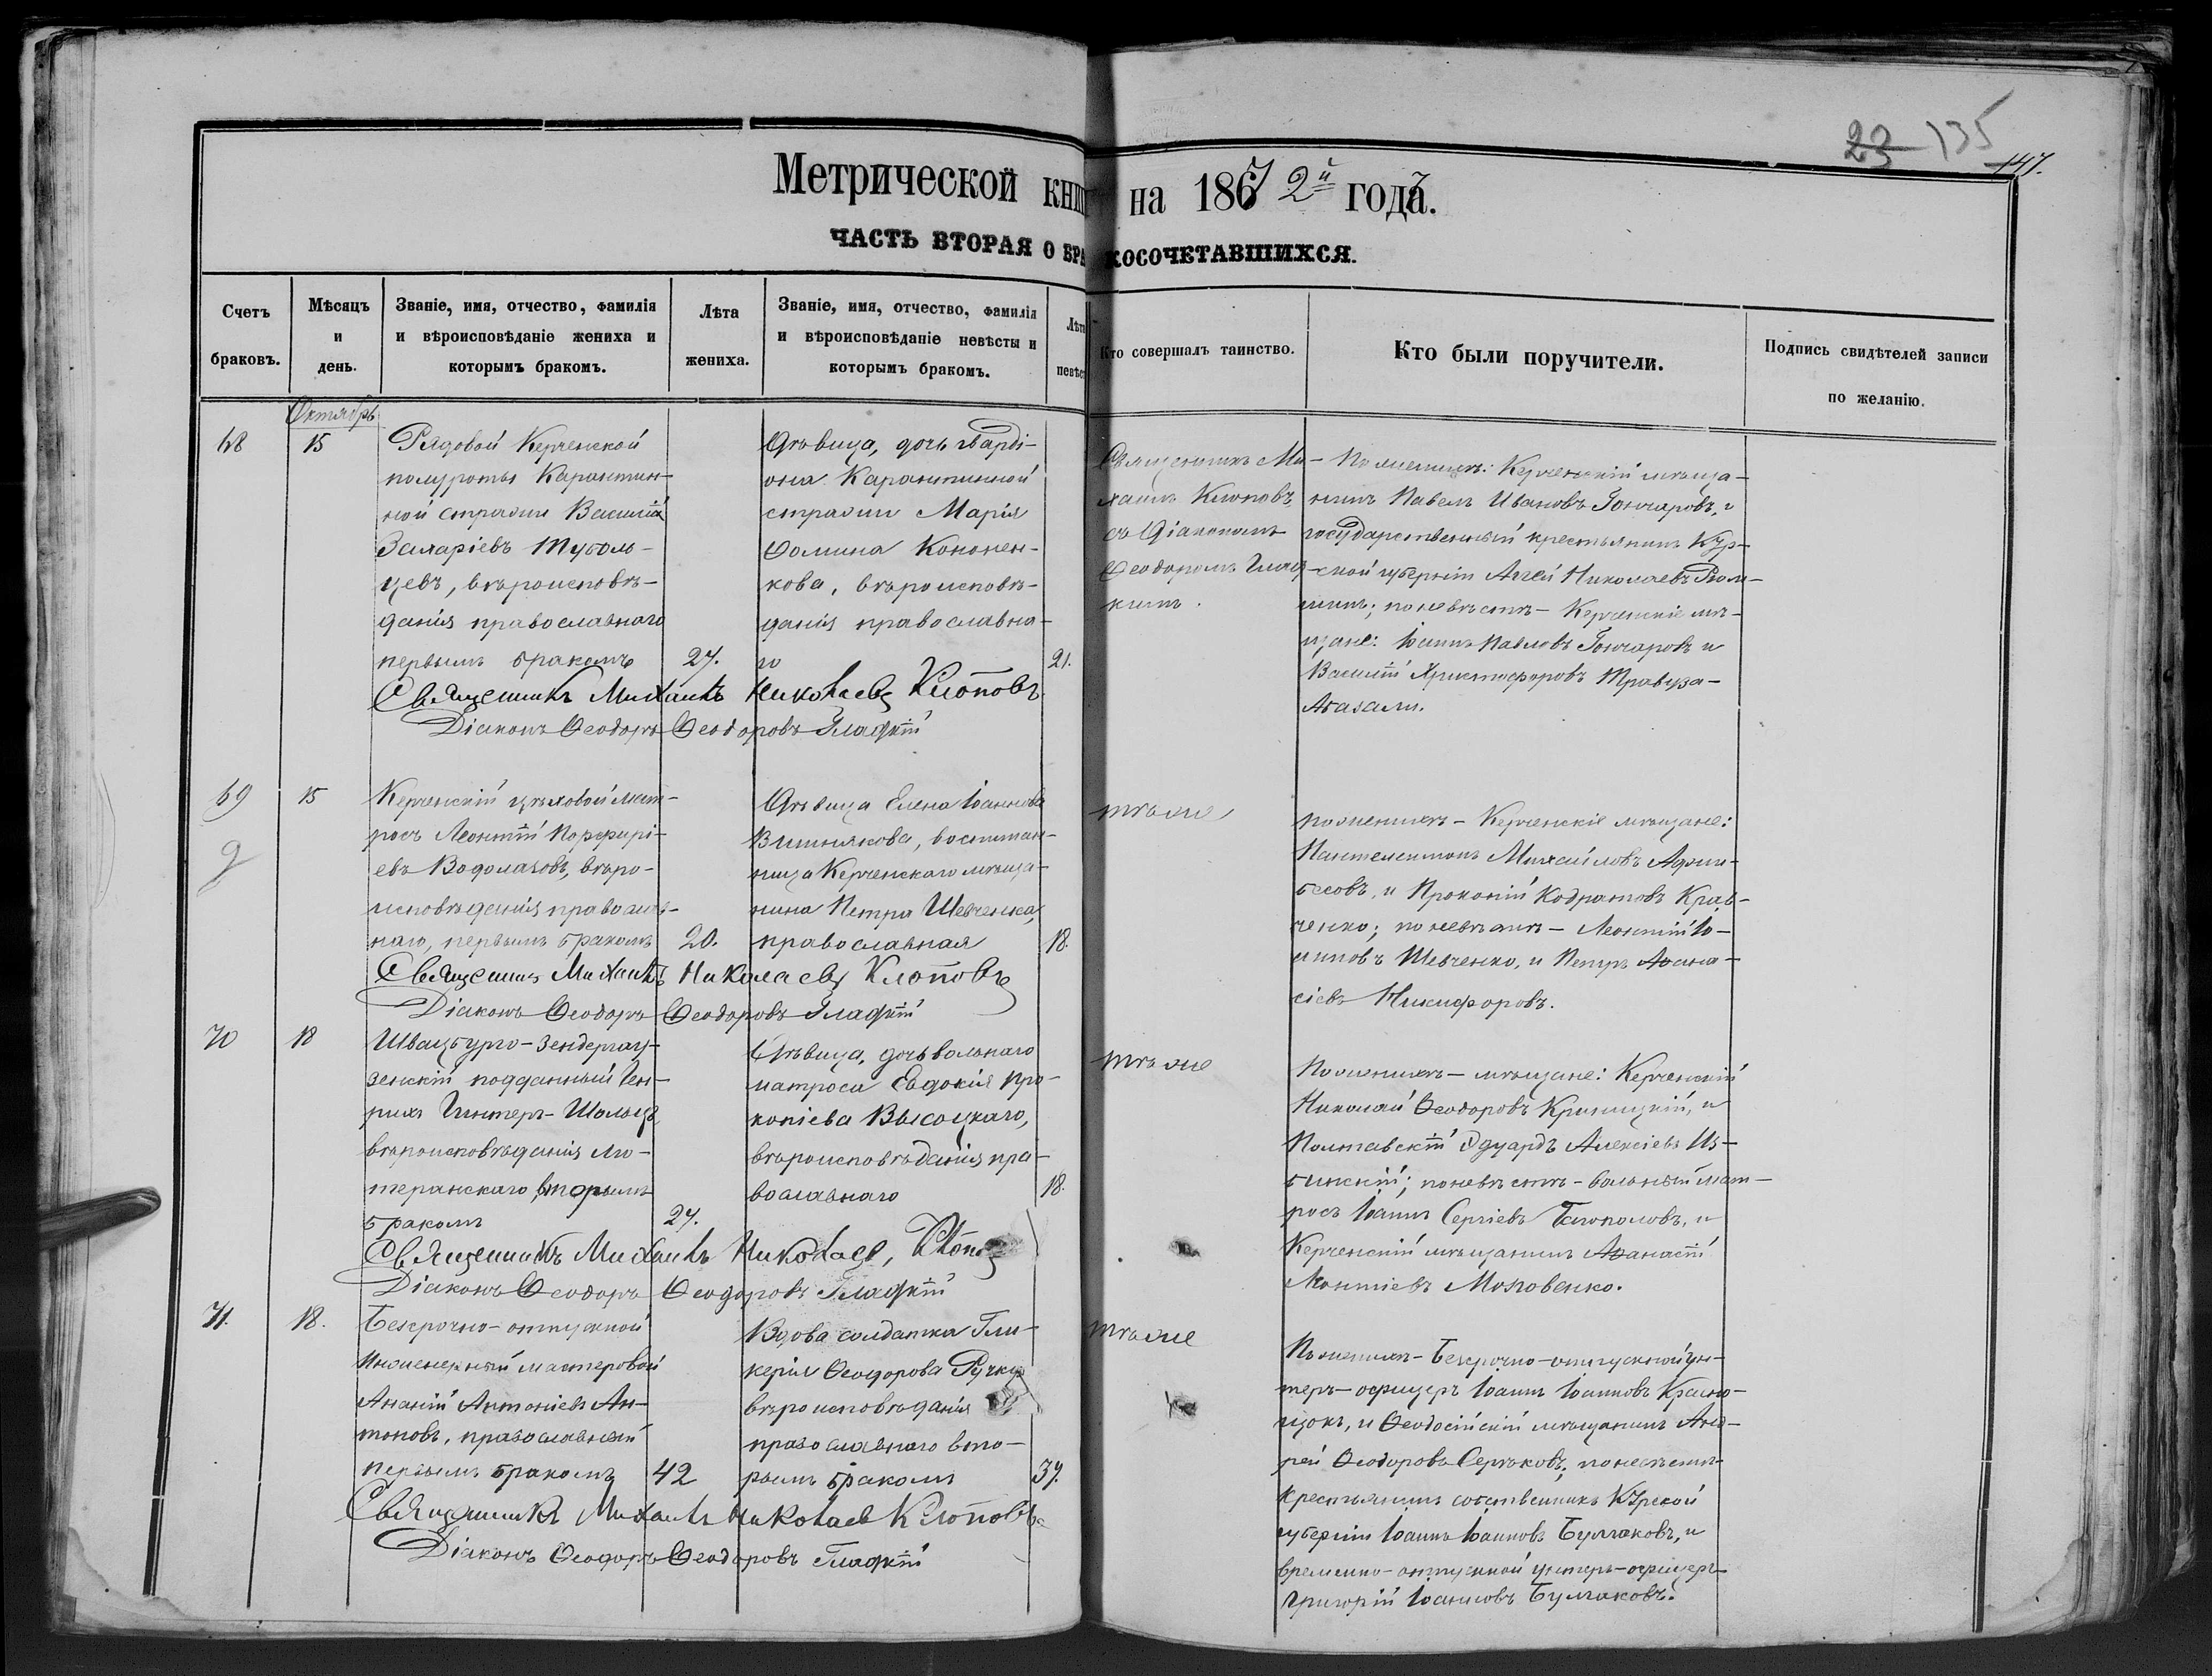 23 135
147.
Метрической книг на 1867 2й годъ.
ЧАСТЬ ВТОРАЯ О БРАКОСОЧЕТАВШИХСЯ.
Счетъ браковъ.
Мѣсяцъ и день.
Званіе, имя, отчество, фамилія
и вѣроисповѣданіе жениха и
которымъ бракомъ.
Лѣта жениха.
Званіе, имя, отчество, фамилія
и вѣроисповѣданіе невѣсты и
которымъ бракомъ.
Кто совершалъ таинство.
Кто были поручители.
Подпись свидѣтелей записи
по желанію.
Октябрь
68
15
Рядовой Керченской
полуроты Карантин-
ной стражи Василій
Захаріевъ Туголь-
цевъ, вѣроисповѣ-
данія православнаго
первымъ бракомъ
27.
Дѣвица, дочь гварді-
она Карантинной
стражи Марія
Ѳомина Кононен-
кова, вѣроисповѣ-
данія православна-
го
21.
Священникъ Ми-
хаилъ Клоповъ,
съ Діакономъ
Ѳеодоромъ Глад-
кимъ.
По женихѣ: Керченскій мѣща-
нинъ Павелъ Ивановъ Гончаровъ, и
государственный крестьянинъ Кур-
ской губерніи Аггей Николаевъ
по невѣстѣ – Керченскіе мѣ-
щане: Іоаннъ Павловъ Гончаровъ и
Василій Христофоровъ
Священникъ Михаилъ Николаевъ Клоповъ
Діаконъ Ѳеодоръ Ѳеодоровъ Гладкій
69
15
Керченскій цѣховой мат-
росъ Леонтій Порфирі-
евъ Водолазовъ, вѣро-
исповѣданія православ-
наго, первымъ бракомъ
20.
Дѣвица Елена Іоаннова
Вишнякова, воспитан-
ница Керченскаго мѣща-
нина Петра Шевченка,
православная
18.
тѣ же
по женихѣ – Керченскіе мѣщане:
Пантелеимонъ Михайловъ
и Прокопій Кодратовъ Крав-
ченко; по невѣстѣ – Леонтій Іо-
Шевченко, и Петръ Аѳана-
сіевъ Никифоровъ.
Священникъ Михаилъ Николаевъ Клоповъ
Діаконъ Ѳеодоръ Ѳеодоровъ Гладкій
70
18
Шварцбурго-Зендерсгау-
зенскій подданный Ген-
рихъ Гинтеръ-Шольцъ,
вѣроисповѣданія лю-
теранскаго, вторымъ
бракомъ
27.
Дѣвица, дочь вольнаго
матроса Евдокія Про-
копіева Высоцкаго,
вѣроисповѣданія пра-
вославнаго
18.
тѣ же
По женихѣ – мѣщане: Керченскій
Николай Ѳеодоровъ Криницкій, и
Полтавскій Эдуардъ Алексіевъ Из-
бинскій; по невѣстѣ – вольный мат-
росъ Іоаннъ Сергіевъ и
Керченскій мѣщанинъ Аѳанасій
Леонтіевъ Московенко.
Священникъ Михаилъ Николаев,
Діаконъ Ѳеодоръ Ѳеодоровъ Гладкій
71.
18.
Безсрочно-отпускной
Инженерный мастеровой
Ананій Антоніевъ Ан-
тоновъ, православный
первымъ бракомъ
42
Вдова солдатка Гли-
керія Ѳеодорова
вѣроисповѣданія
православнаго вто-
рымъ бракомъ
37.
тѣ же
По женихѣ – Безсрочно-отпускной ун-
теръ-офицеръ Іоаннъ Іоанновъ Красно-
щокъ, и Ѳеодосійскій мѣщанинъ Анд-
рей Ѳеодоровъ Серѣковъ; по невѣстѣ
крестьянинъ собственникъ Курской
губерніи Іоаннъ Іоанновъ Булгаковъ, и
временно-отпускной унтеръ-офицеръ
Григорій Іоанновъ Булгаковъ.
Священникъ Михаилъ Николаев Клоповъ
Діаконъ Ѳеодоръ Ѳеодоровъ Гладкій